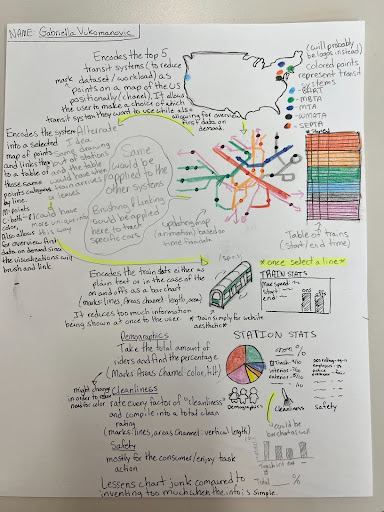 NAME: Gabriella Vukomanovic
Encodes the top 5
transit systems (to reduce
mark dataset/workload) as
points on a map of the US
positionally (channel). It allows
the user to make a choice of which
transit system they want to use while also
allowing for overview
first data on
demand.
(will probably
be logos instead)
colored points
represent transit
systems
-BART
-MBTA
-MTA
-WMATA
-SEPTA
Encodes the system
into a selected
map of points
and links they
to a table of
those same
points categorized
by line.
M-points
Also allows
for overview first
data on demand since
the visualizations will
brush and link
Alternate
Idea
drawing
out of stations
would have
when train arrives
& leaves
would have
more unique
color
this way
Same
would be
applied to the
other systems
Brushing & linking
would be applied
here to track
specific cars.
updating map
(animation) based on
time/train data
Table of trains
(start/end time)
Encodes the train stats either as
plain text or in the case of the
on and offs as a bar chart
(marks: lines, areas channel: length, area)
It reduces too much information
being shown at once to the user.
*once select a line*
TRAIN STATS
Max speed
start
end:
* train simply for website
aesthetic *
Demographics
Take the total amount of
riders and find the percentage
(Marks: Areas Channel: color, tilt)
might change
in order to reduce
need for color
Cleanliness
rate every factor of "cleanliness"
and compile into a total clean
rating
(marks: lines, areas Channel: vertical length)
Safety
mostly for the consumer/enjoy task
action
Lessens chart junk compared to
inventing too much when the info is simple.
STATION STATS
Trash: %
interior: %
exterior: %
Demographics
Cleanliness
Safety
would be
bar chart as well
Total %